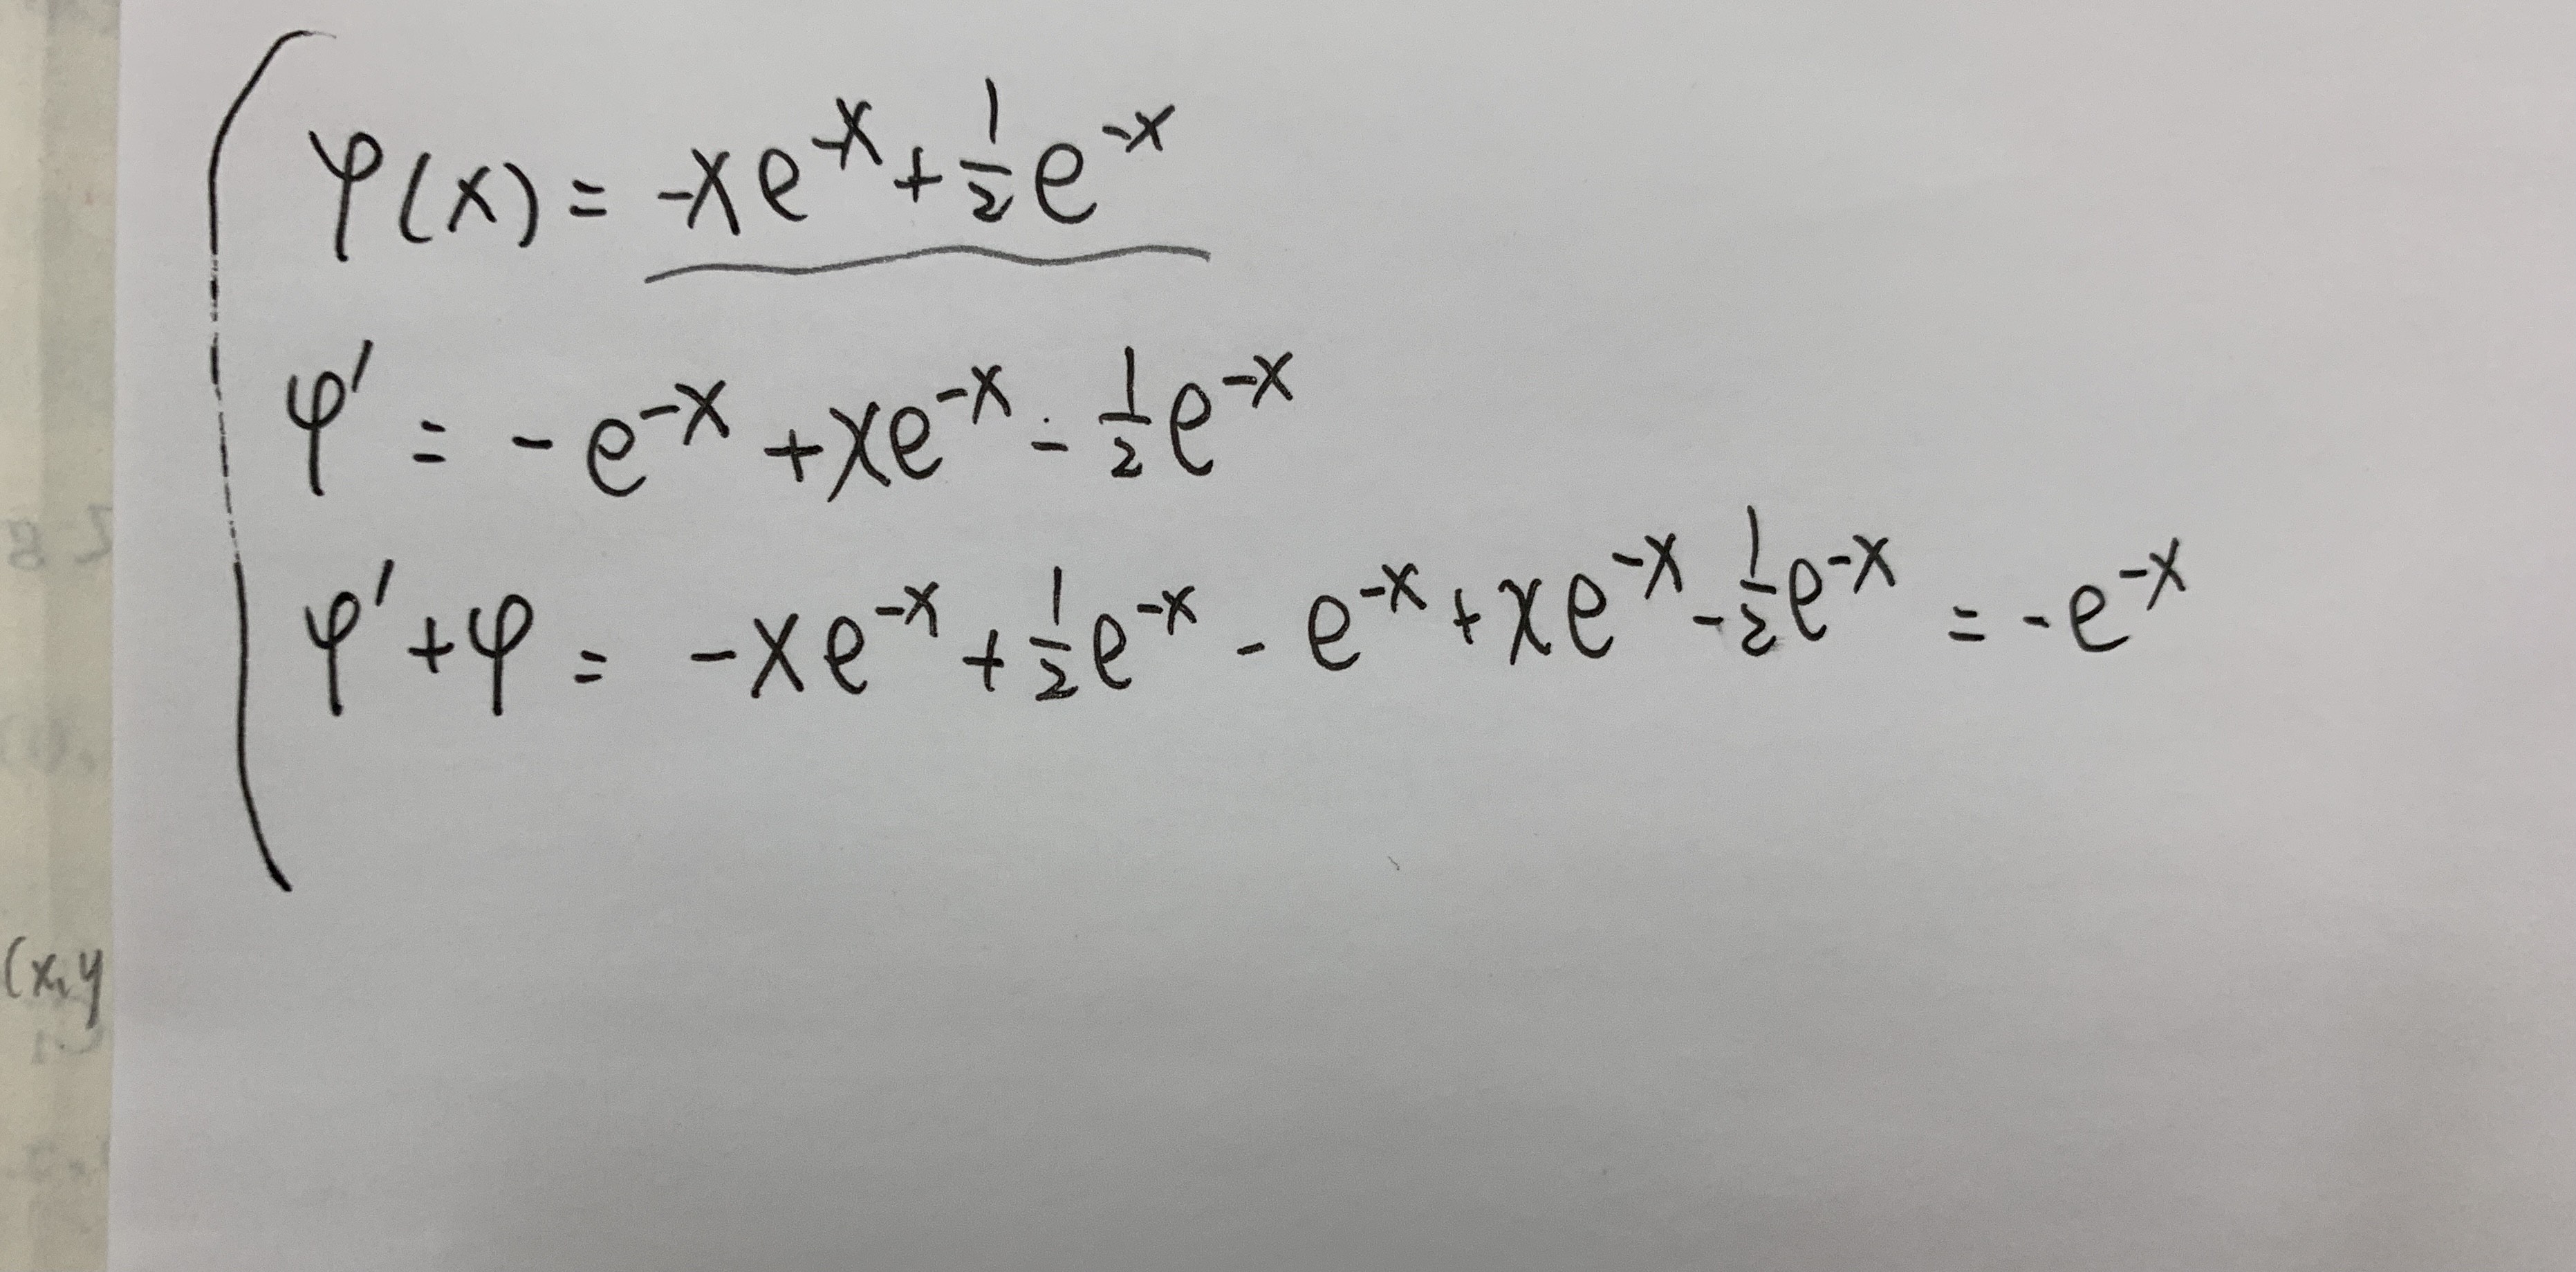 φ(x) = -xe^{-x} + \frac{1}{2}e^{-x}
φ' = -e^{-x} + xe^{-x} - \frac{1}{2}e^{-x}
φ' + φ = -xe^{-x} + \frac{1}{2}e^{-x} - e^{-x} + xe^{-x} - \frac{1}{2}e^{-x} = -e^{-x}
(x,y